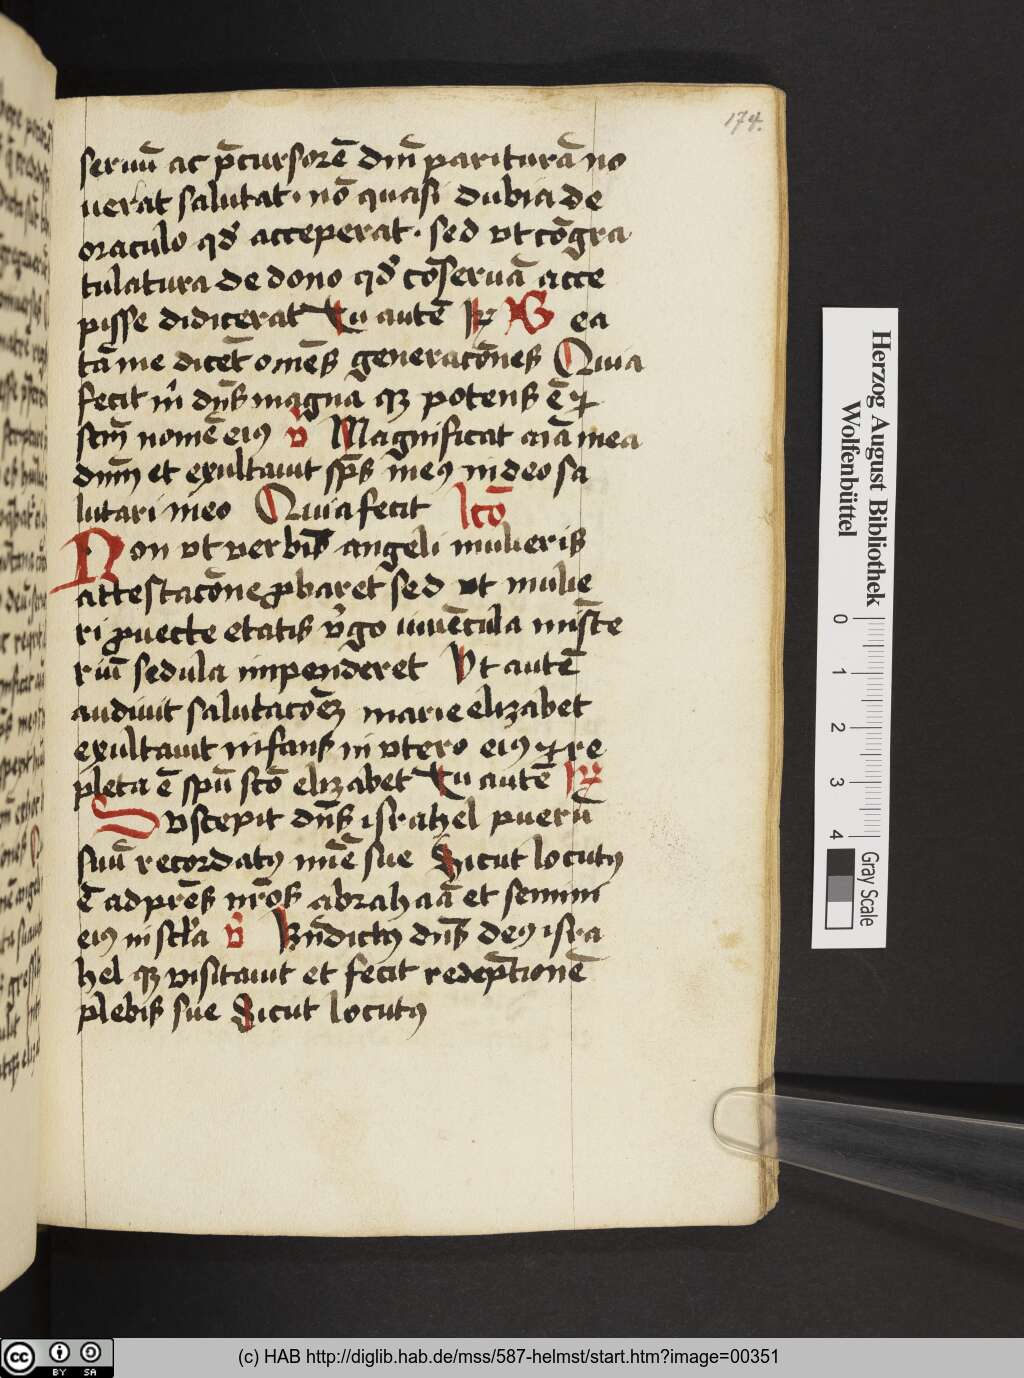 174.
seruū ac p̄cursorē dn̄i pariturā no
uerat salutat · nō quasi dubia de
oraculo qd̄ acceperat · sed vt cōgra
tulatura de dono qd̄ cōseruā acce
pisse didicerat Tu autē R̄ B ea
tā me dicēt om̄es generacōnes Quia
fecit m̄ dn̄s magna qꝫ potens ē ⁊
sc̄m nomē eiꝰ v̄ Magnificat aīa mea
dnm̄ et exultauit sp̄s meꝰ in deo sa
lutari meo Quia fecit lc̄o
Non vt verbis angeli mulieris
attestacōne ꝓbaret sed vt mulie
ri ꝓuecte etatis v̄go iuuēcula mīste
riū sedula impenderet Vt autē
audiuit salutacōeꝫ marie elizabet
exultauit infans in vtero eiꝰ ⁊ re
pleta ē spū sc̄o elizabet Tu autē R̄
Suscepit dn̄s israhel puerū
suū recordatꝰ mīe sue Sicut locutꝰ
ē ad pr̄es nr̄os abrahaā et semini
eiꝰ in scl̄a v̄ Bn̄dictꝰ dn̄s deꝰ isra
hel qꝫ visitauit et fecit redēptionē
plebis sue Sicut locutꝰ
Herzog August Bibliothek
Wolfenbüttel
0 1 2 3 4
Gray Scale
cc BY SA
(c) HAB http://diglib.hab.de/mss/587-helmst/start.htm?image=00351